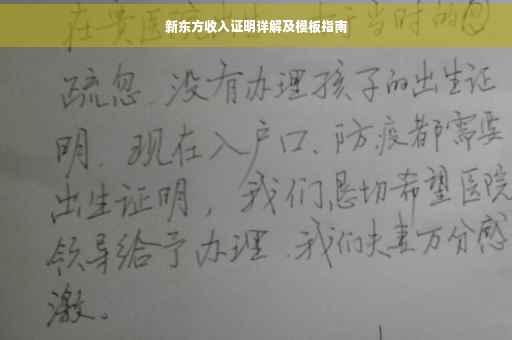 新东方收入证明详解及模板指南
当时的
疏忽、没有办理孩子的出生证
明、现在入户口、防疫都需要
出生证明，我们恳切希望医院
领导给予办理、我们夫妻万分感
激。